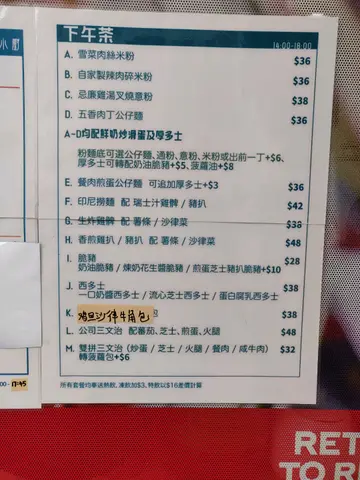 下午茶
14:00-18:00
A. 雪菜肉絲米粉 $36
B. 自家製辣肉碎米粉 $36
C. 忌廉雞湯叉燒意粉 $38
D. 五香肉丁公仔麵 $36
A-D均配鮮奶炒滑蛋及厚多士
粉麵底可選公仔麵、通粉、意粉、米粉或出前一丁+$6、
厚多士可轉配奶油脆豬+$5、菠蘿油+$8
E. 餐肉煎蛋公仔麵 可追加厚多士+$3 $36
F. 印尼撈麵 配 瑞士汁雞髀 / 豬扒 $42
G. 生炸雞髀 配 薯條 / 沙律菜 $38
H. 香煎雞扒 / 豬扒 配 薯條 / 沙律菜 $48
I. 脆豬 $28
奶油脆豬 / 煉奶花生醬脆豬 / 煎蛋芝士豬扒脆豬+$10
J. 西多士 $38
一口奶醬西多士 / 流心芝士西多士 / 蛋白腐乳西多士
K. 鸡旦沙律牛角包 $38
L. 公司三文治 配蕃茄、芝士、煎蛋、火腿 $48
M. 雙拼三文治 (炒蛋 / 芝士 / 火腿 / 餐肉 / 咸牛肉) $32
轉菠蘿包+$6
所有套餐均奉送熱飲，凍飲加$3，特飲以$16差價計算
17:45
RET
TO R